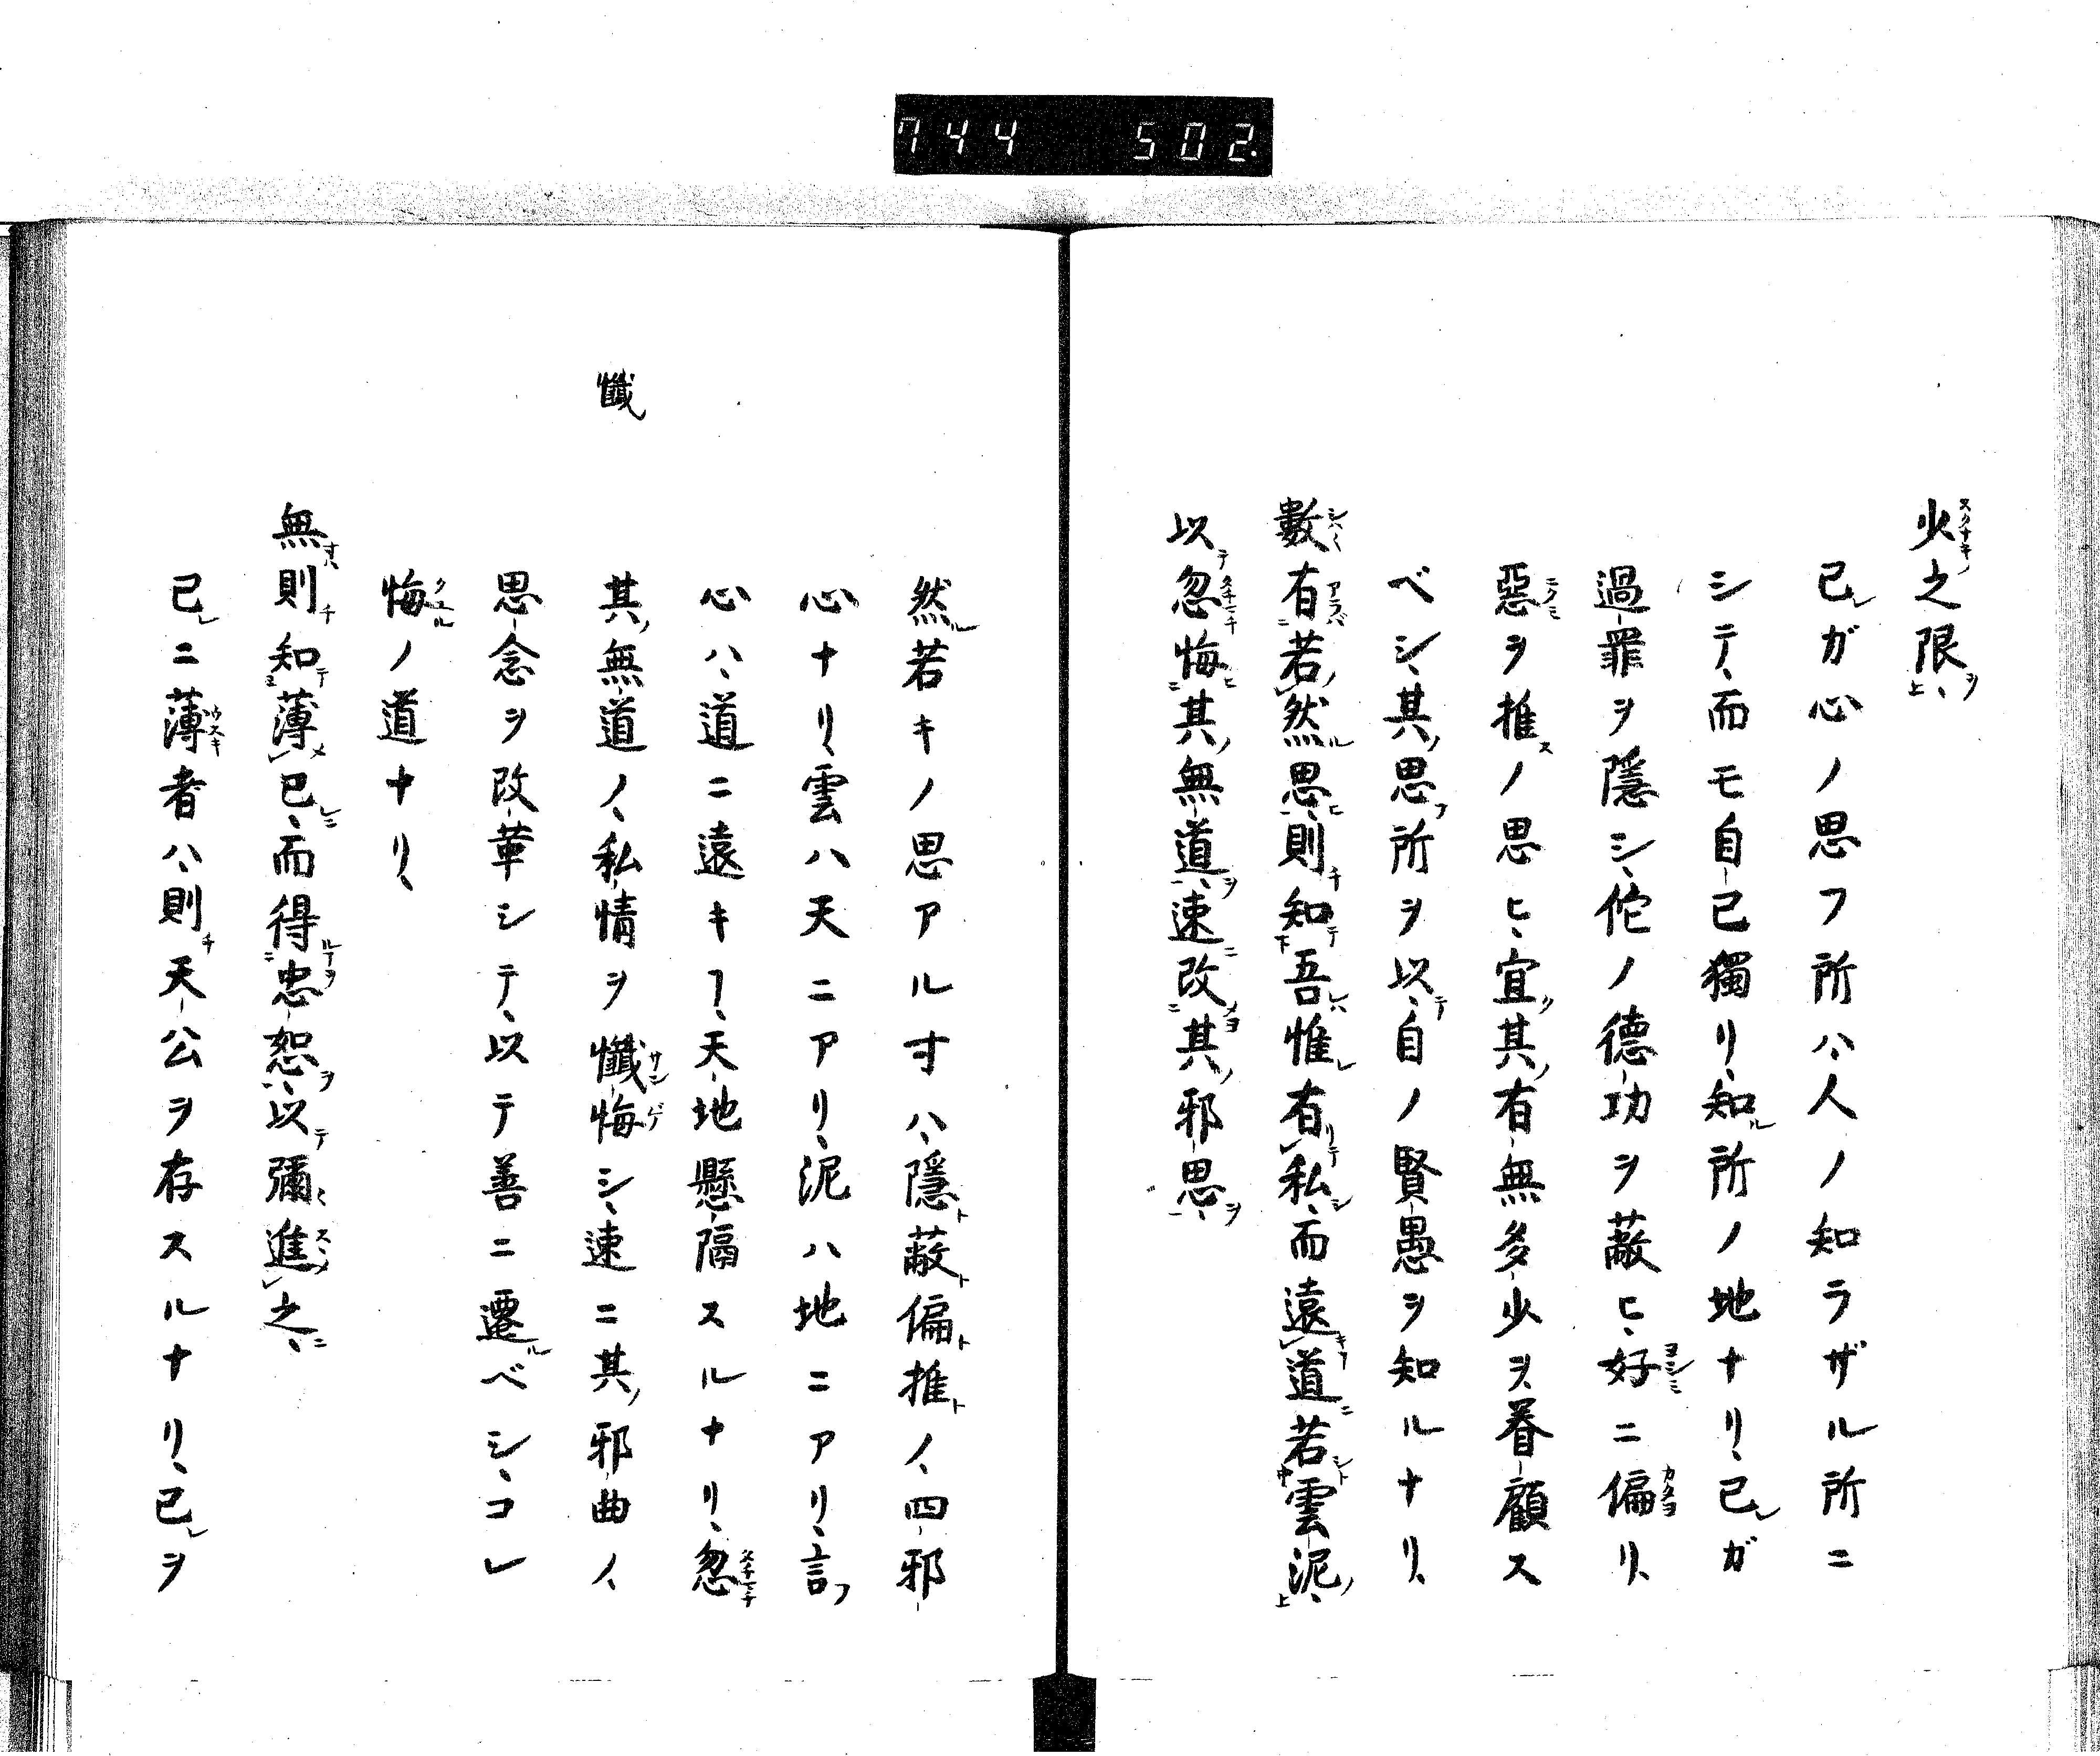 744 502.
少之限、
己レガ心ノ思フ所ハ、人ノ知ラザル所ニ
シテ、而モ自己獨リ、知ル所ノ地ナリ、己レガ
過罪ヲ隱シ、佗ノ德功ヲ蔽ヒ、好ニ偏リ、
惡ヲ推スノ思ヒ、宜ク其ノ有無多少ヲ、眷顧ス
ベシ、其ノ思フ所ヲ以テ、自ノ賢愚ヲ知ルナリ、
數有若然思、則知吾惟有私、而遠道若雲泥、
以忽悔其無道、速改其邪思、
然若キノ思アル寸ハ、隱ト蔽ト偏ト推トノ、四邪
心ナリ、雲ハ天ニアリ、泥ハ地ニアリ、言フ
心ハ、道ニ遠キヿ、天地懸隔スルナリ、忽
其ノ無道ノ、私情ヲ懺悔シ、速ニ其ノ邪曲ノ、
思念ヲ改革シテ、以テ善ニ遷ルベシ、コレ
悔ノ道ナリ、
懺
無則知薄己、而得忠恕、以彌進之、
己レニ薄キ者ハ、則チ天公ヲ存スルナリ、己レヲ